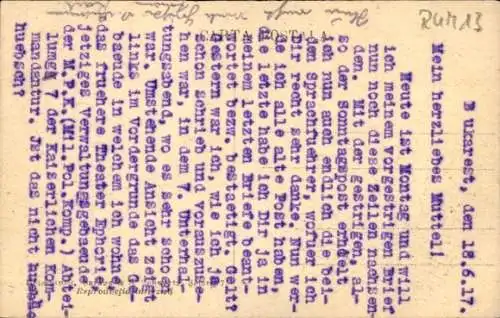 Bukarest, den 18.6.17.
Mein herzliebes Muttel!
Heute ist Montag und will
ich meinen vorgestrigen Brief
nun noch diese Zeilen nachsen-
den. Mit der gestrigen, al-
so der Sonntagspost erhielt
ich nun auch endlich die bei-
den Sprachfuehrer worueber ich
Dir recht sehr danke. Nun wer-
de ich alle alte Post haben
die letzte habe ich Dir ja in
meinem letzten Briefe beant-
wortet bezw. bestaetigt. Gelt?
Gestern war ich, wie ich ja
schon schrieb und vorauszuse-
hen war, in dem 7. Unterhal-
tungsabend, wo es sehr schoen
war. Umstehende Ansicht zeigt
links im Vordergrunde das Ge-
baeude in welchem ich wohne
das fruehere Theater Ephorie
jetziges Verwaltungsgebaeude
der M.P.K.(Mil.Pol.Komp.) Abtei-
lung 7 der Kaiserlichen Kom-
mandantur. Ist das nicht
huebsch?
CARTA POSTALA
RUM 13